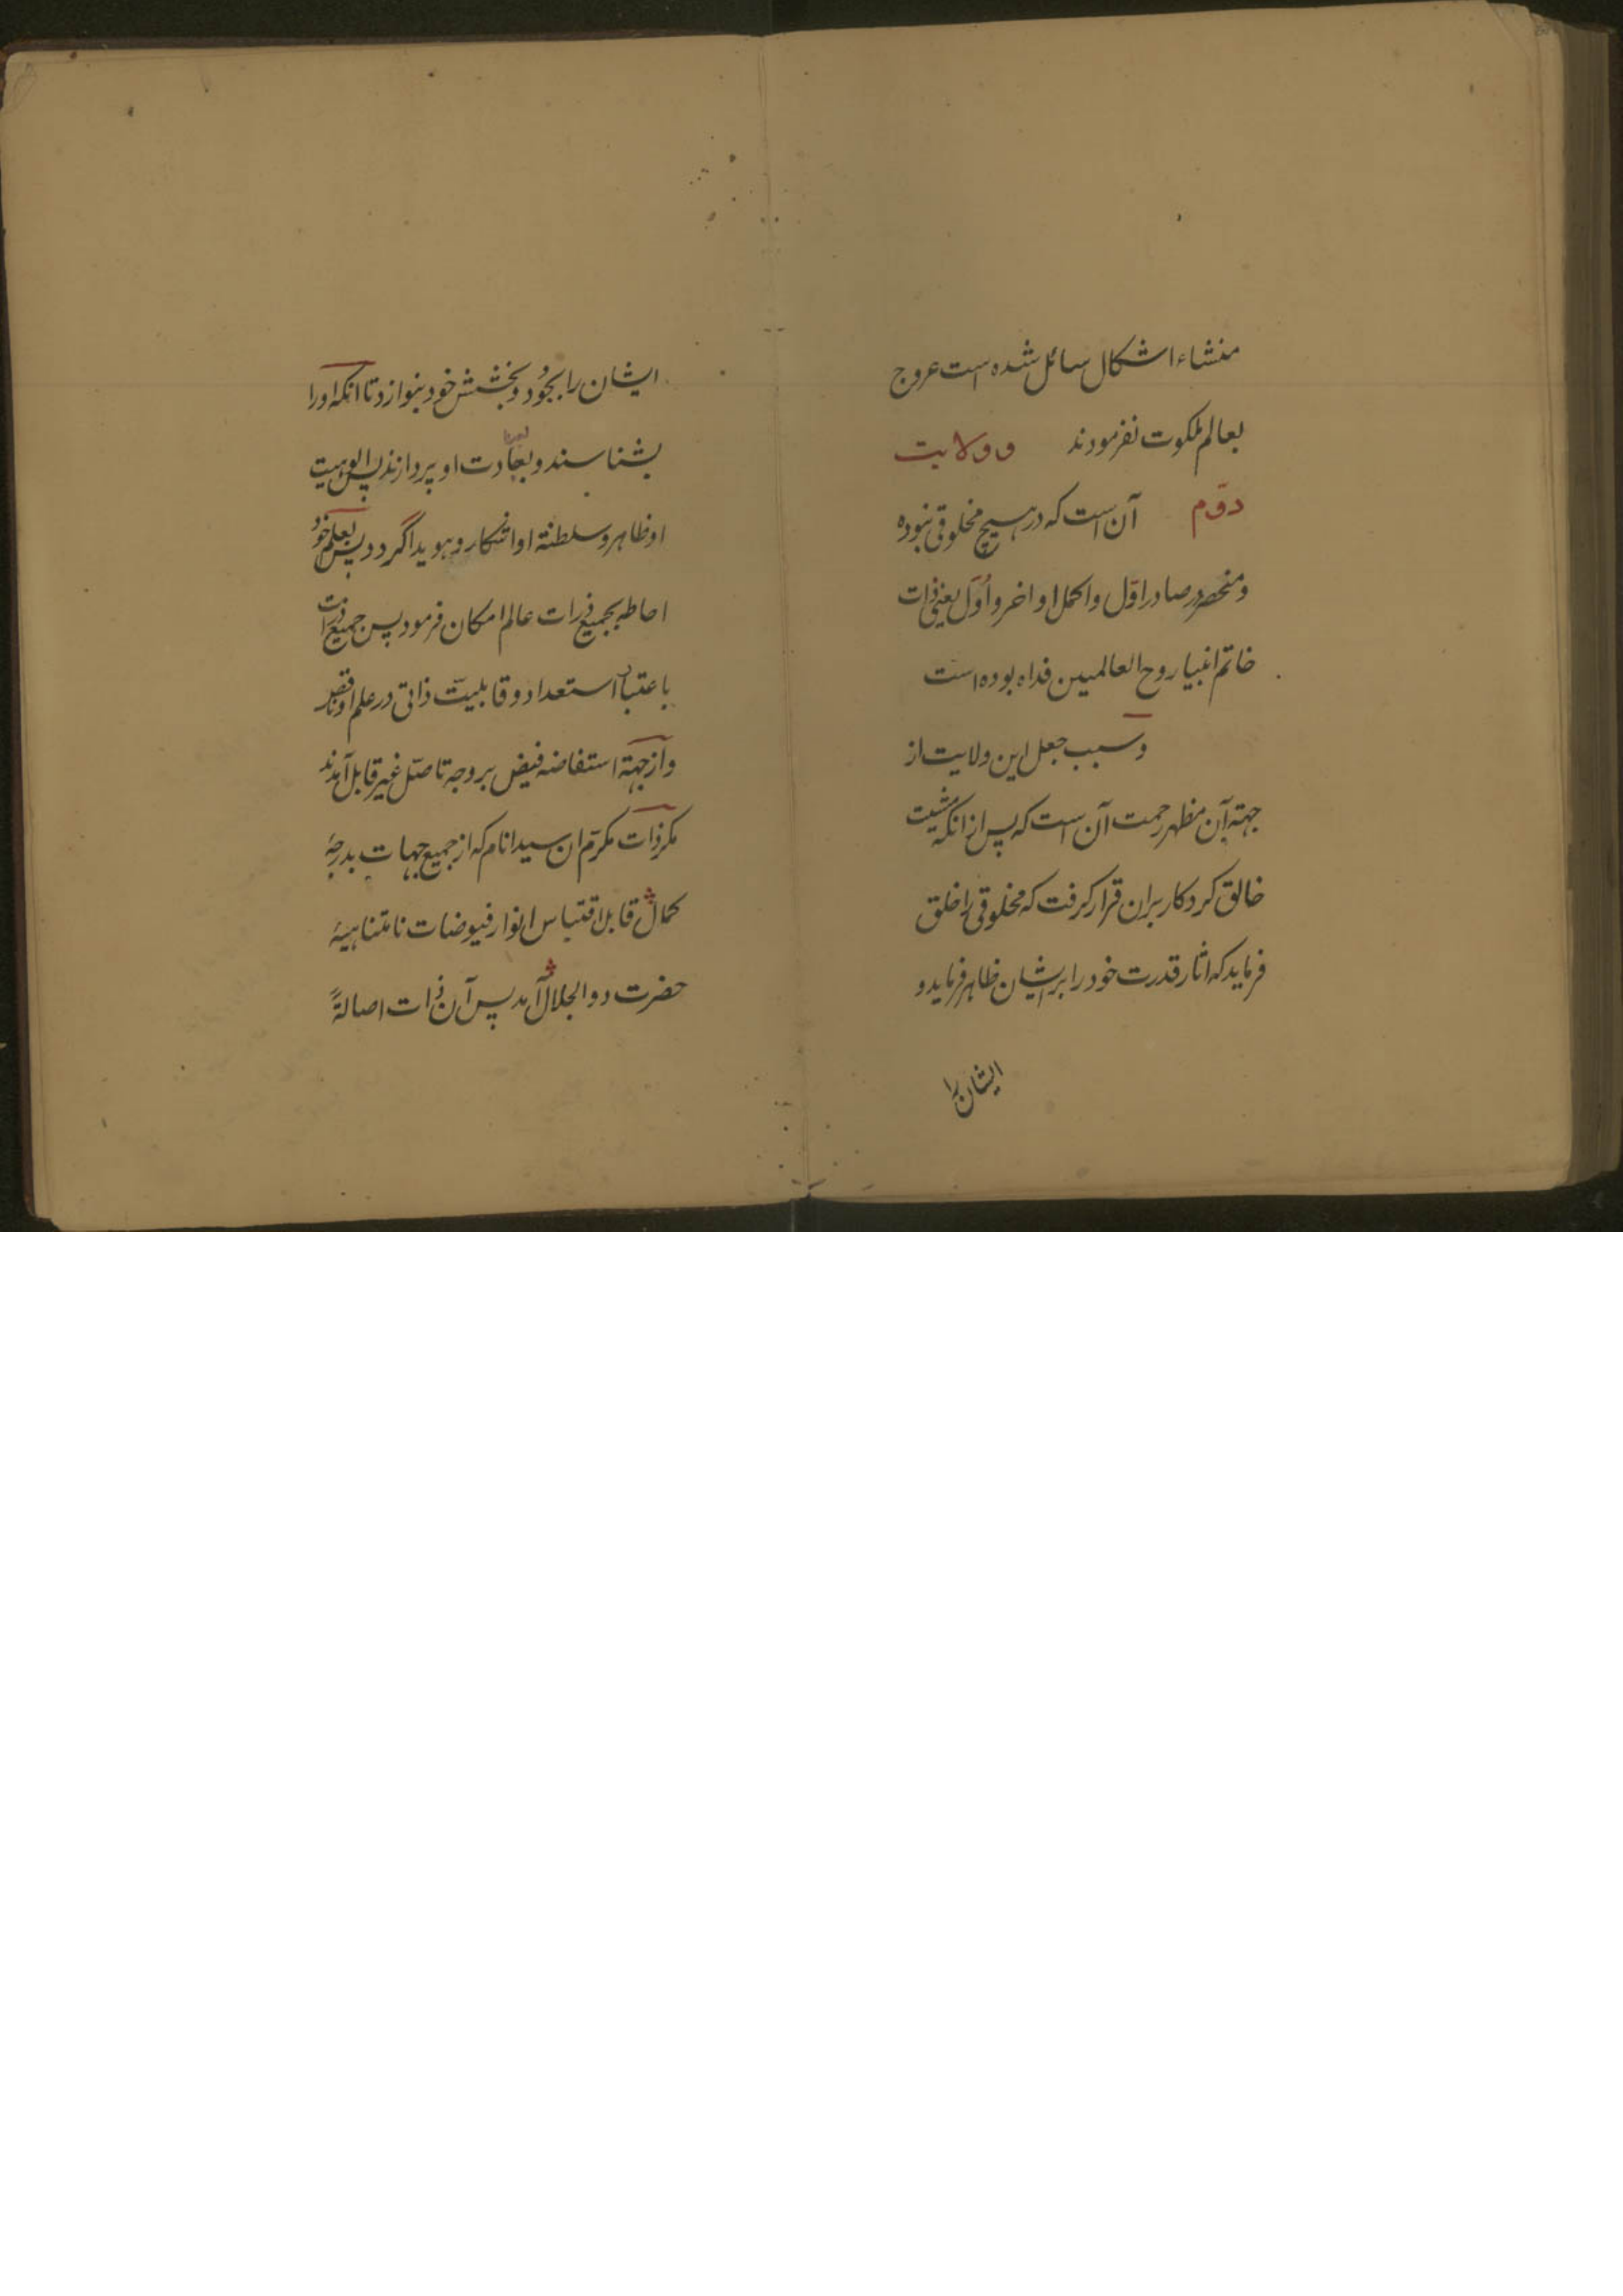 منشاء اشکال سائل شده است عروج
بعالم ملکوت نفرمودند و ولایت
دوّم آن است که در هیچ مخلوقی نبوده
و منحصر در صادر اوّل و اکمل او اخر و اوّل یعنی ذات
خاتم انبیا روح العالمین فداه بوده است
و سبب جعل این ولایت از
جهة آن مظهر رحمت آن است که پس از انکه مشیت
خالق کردکار بران قرار کرفت که مخلوقی را خلق
فرماید که اثار قدرت خود را بر ایشان ظاهر فرماید و
ایشان را
ایشان را بجُود و بخشش خود بنوازد تا انکه او را
بشناسند و بعبادت او پردازند پس الوهیت
او ظاهر و سلطنة او اشکار و هویدا گردد پس بعلم خود
احاطه بجمیع ذرات عالم امکان فرمود پس جمیع ذرات
باعتبار استعداد و قابلیت ذاتی در علم او
و از جهة استفاضه فیض بر وجه تاصّل غیر قابل آمدند
مکر ذات مکرّم ان سید انام که از جمیع جهات بدرجهٔ
کمال قابل اقتباس انوار فیوضات نامتناهیهٔ
حضرت ذو الجلال آمد پس آن ذات اصالةً